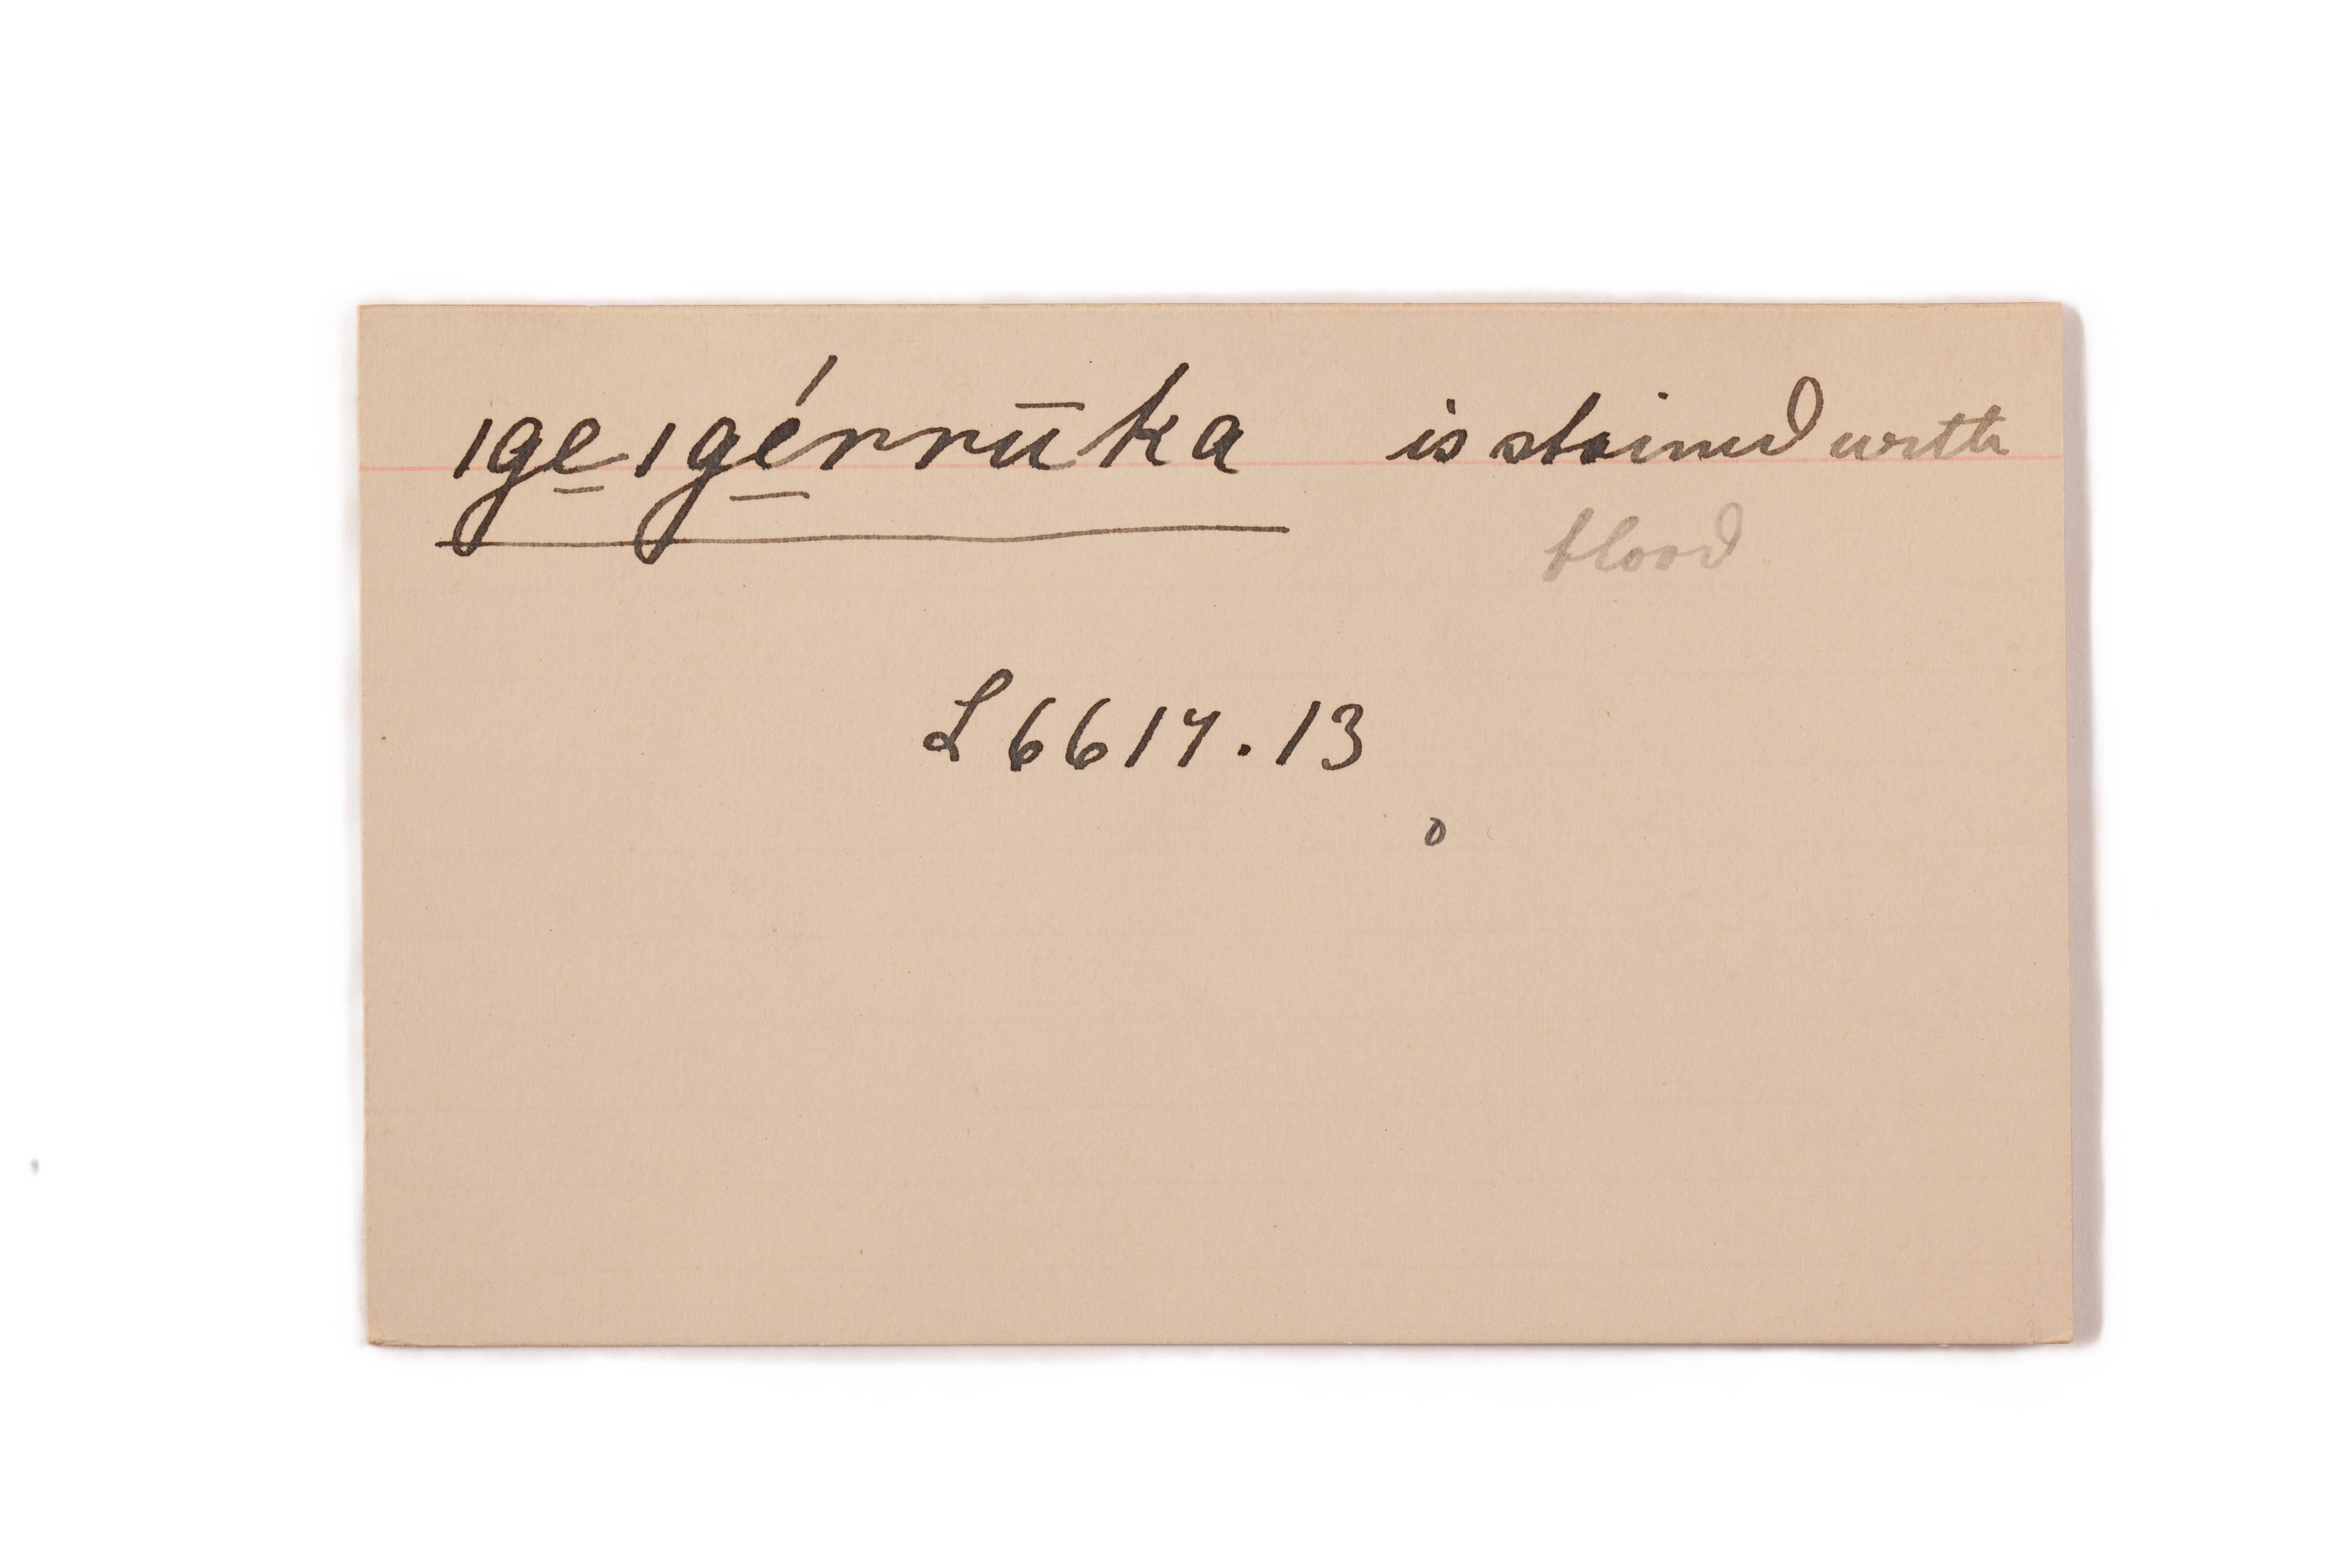 ıge̱ıgé̱rrūka is stained with
blood
L6617.13
o